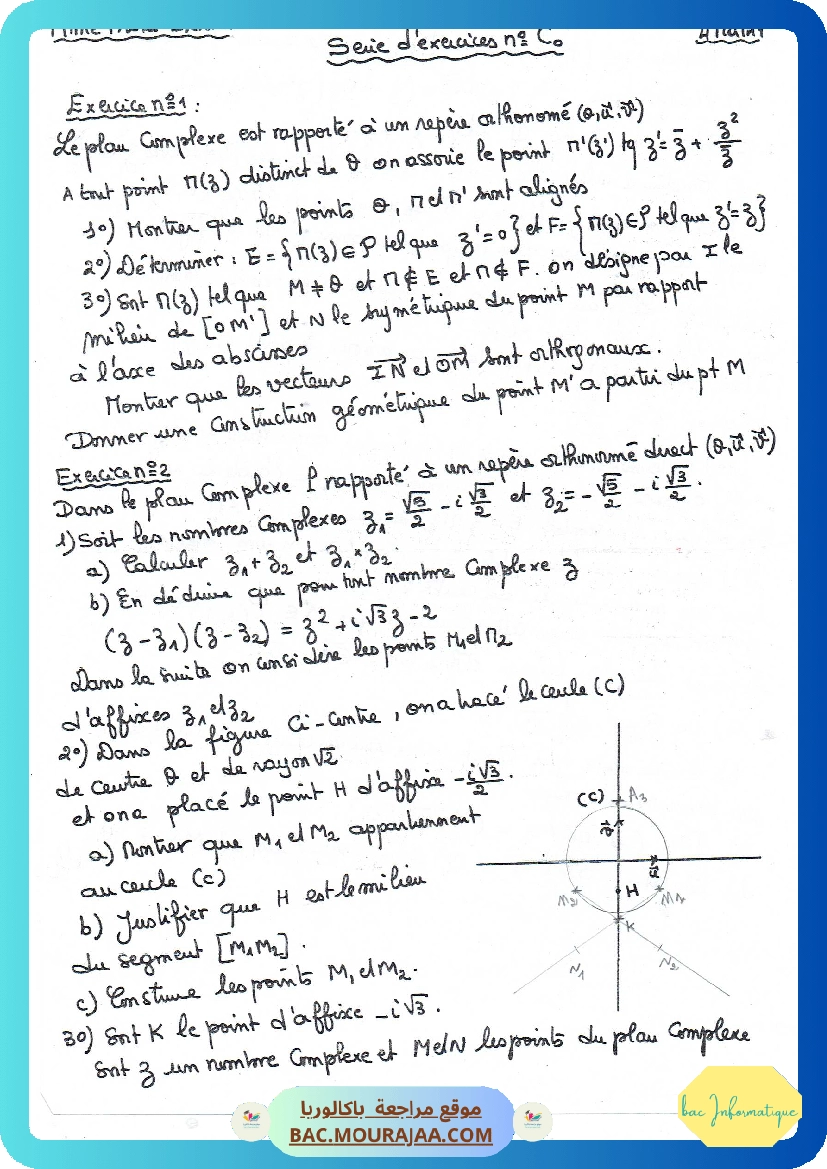 Serie d'exercices n°
Exercice n°1 :
Le plan Complexe est rapporté à un repère orthonormé (o, u⃗, v⃗)
A tout point M(z) distinct de O on associe le point M'(z') tq z' = z̄ + z²/z̄
1°) Montrer que les points O, M et M' sont alignés
2°) Déterminer : E = {M(z) ∈ P tel que z' = 0} et F = {M(z) ∈ P tel que z' = z}
3°) Soit M(z) tel que M ≠ O et M ∉ E et M ∉ F. on désigne par I le
milieu de [OM'] et N le symétrique du point M par rapport
à l'axe des abscisses
Montrer que les vecteurs IN et OM sont orthogonaux.
Donner une Construction géométrique du point M' a partir du pt M
Exercice n°2
Dans le plan Complexe P rapporté à un repère orthonormé direct (O, u⃗, v⃗)
1) Soit les nombres Complexes z₁ = √5/2 - i √3/2 et z₂ = - √5/2 - i √3/2.
a) Calculer z₁ + z₂ et z₁ × z₂.
b) En déduire que pour tout nombre Complexe z
(z - z₁)(z - z₂) = z² + i√3 z - 2
Dans la suite on considère les points M₁ et M₂
d'affixes z₁ et z₂
2°) Dans la figure Ci-contre, on a tracé le cercle (C)
de centre O et de rayon √2
et on a placé le point H d'affixe - i√3/2.
a) Montrer que M₁ et M₂ appartiennent
au cercle (C)
b) Justifier que H est le milieu
du segment [M₁M₂].
c) Construire les points M₁ et M₂.
3°) Soit K le point d'affixe -i√3.
Soit z un nombre Complexe et M et N les points du plan Complexe
(C)
A₃
v⃗
√2
H
M₂
M₁
K
N₁
N₂
موقع مراجعة باكالوريا
BAC.MOURAJAA.COM
bac Informatique